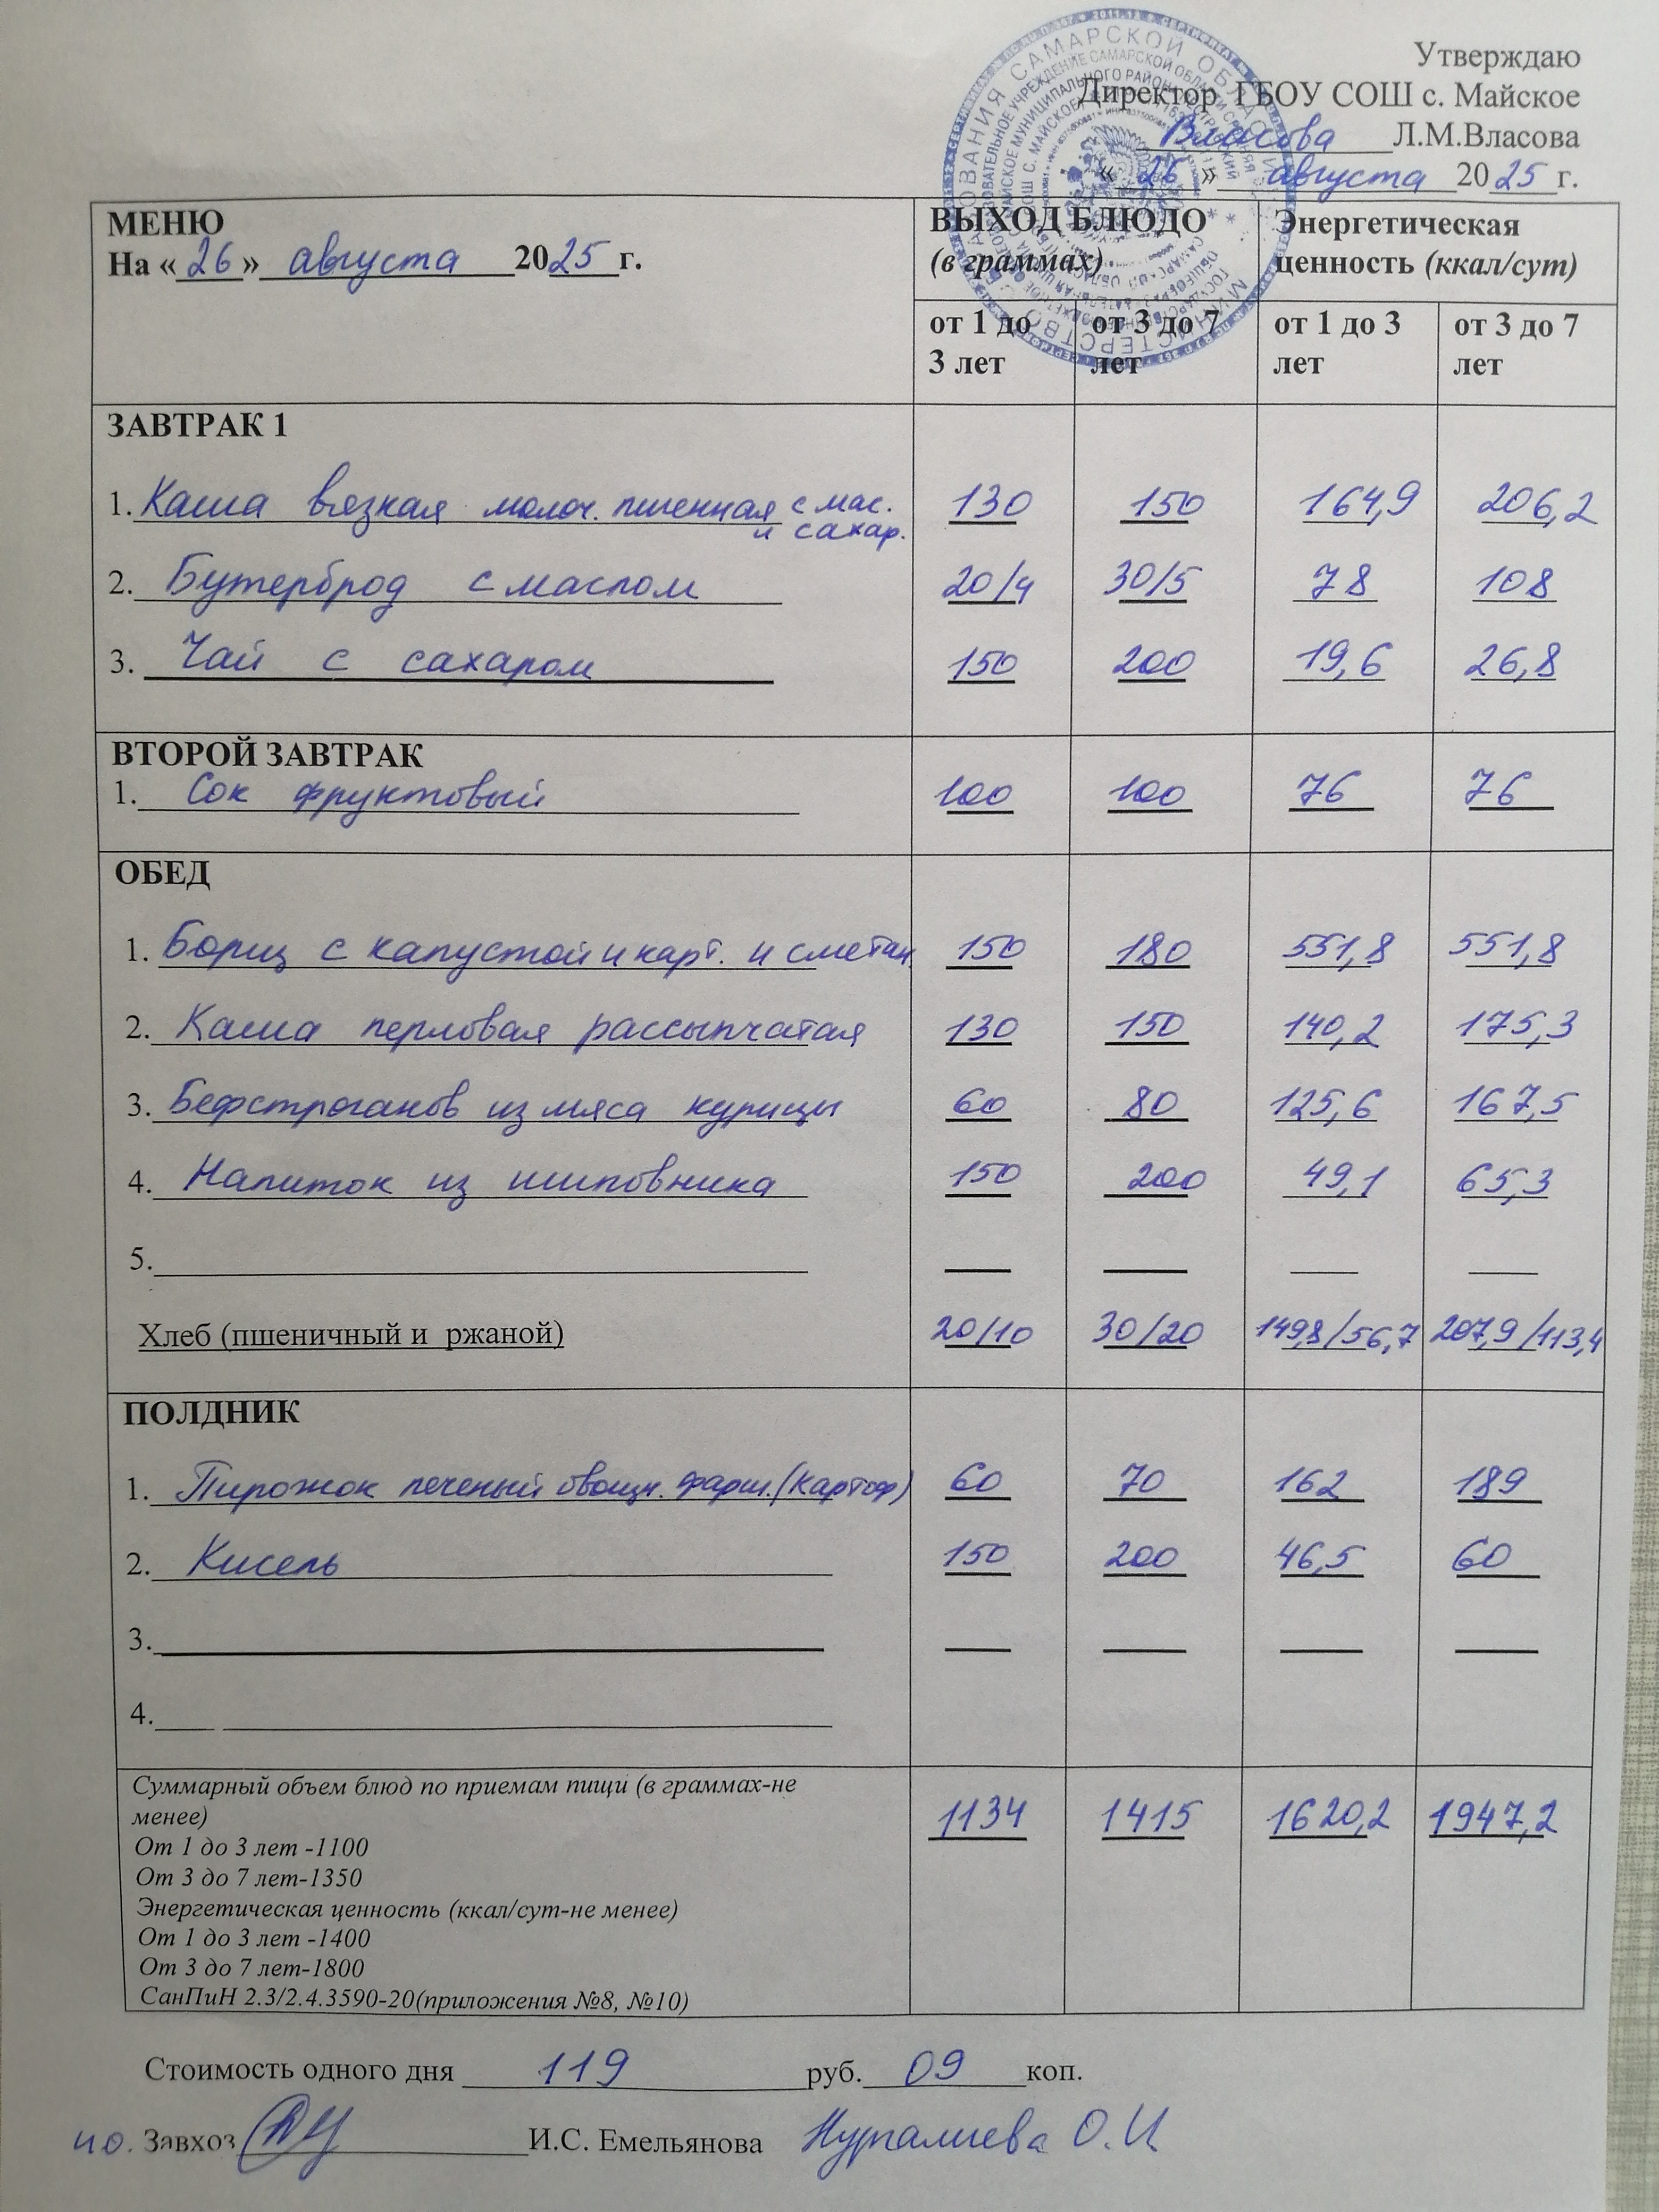 Утверждаю
Директор ГБОУ СОШ с. Майское
Власова Л.М.Власова
« 26 » августа 2025 г.
МЕНЮ
На « 26 » августа 2025 г.
ВЫХОД БЛЮДО
(в граммах)
Энергетическая
ценность (ккал/сут)
от 1 до
3 лет
от 3 до 7
лет
от 1 до 3
лет
от 3 до 7
лет
ЗАВТРАК 1
1. Каша вязкая молоч. пшенная с мас. 130 150 164,9 206,2
и сахар.
2. Бутерброд с маслом 20/4 30/5 78 108
3. Чай с сахаром 150 200 19,6 26,8
ВТОРОЙ ЗАВТРАК
1. Сок фруктовый 100 100 76 76
ОБЕД
1. Борщ с капустой и карт. и сметан. 150 180 551,8 551,8
2. Каша перловая рассыпчатая 130 150 140,2 175,3
3. Бефстроганов из мяса курицы 60 80 125,6 167,5
4. Напиток из шиповника 150 200 49,1 65,3
5.
Хлеб (пшеничный и ржаной) 20/10 30/20 149,8/56,7 207,9/113,4
ПОЛДНИК
1. Пирожок печеный овощн. фарш. (картоф) 60 70 162 189
2. Кисель 150 200 46,5 60
3.
4.
Суммарный объем блюд по приемам пищи (в граммах-не
менее) 1134 1415 1620,2 1947,2
От 1 до 3 лет -1100
От 3 до 7 лет-1350
Энергетическая ценность (ккал/сут-не менее)
От 1 до 3 лет -1400
От 3 до 7 лет-1800
СанПиН 2.3/2.4.3590-20(приложения №8, №10)
Стоимость одного дня 119 руб. 09 коп.
ио. Завхоз И.С. Емельянова Нургалиева О.И